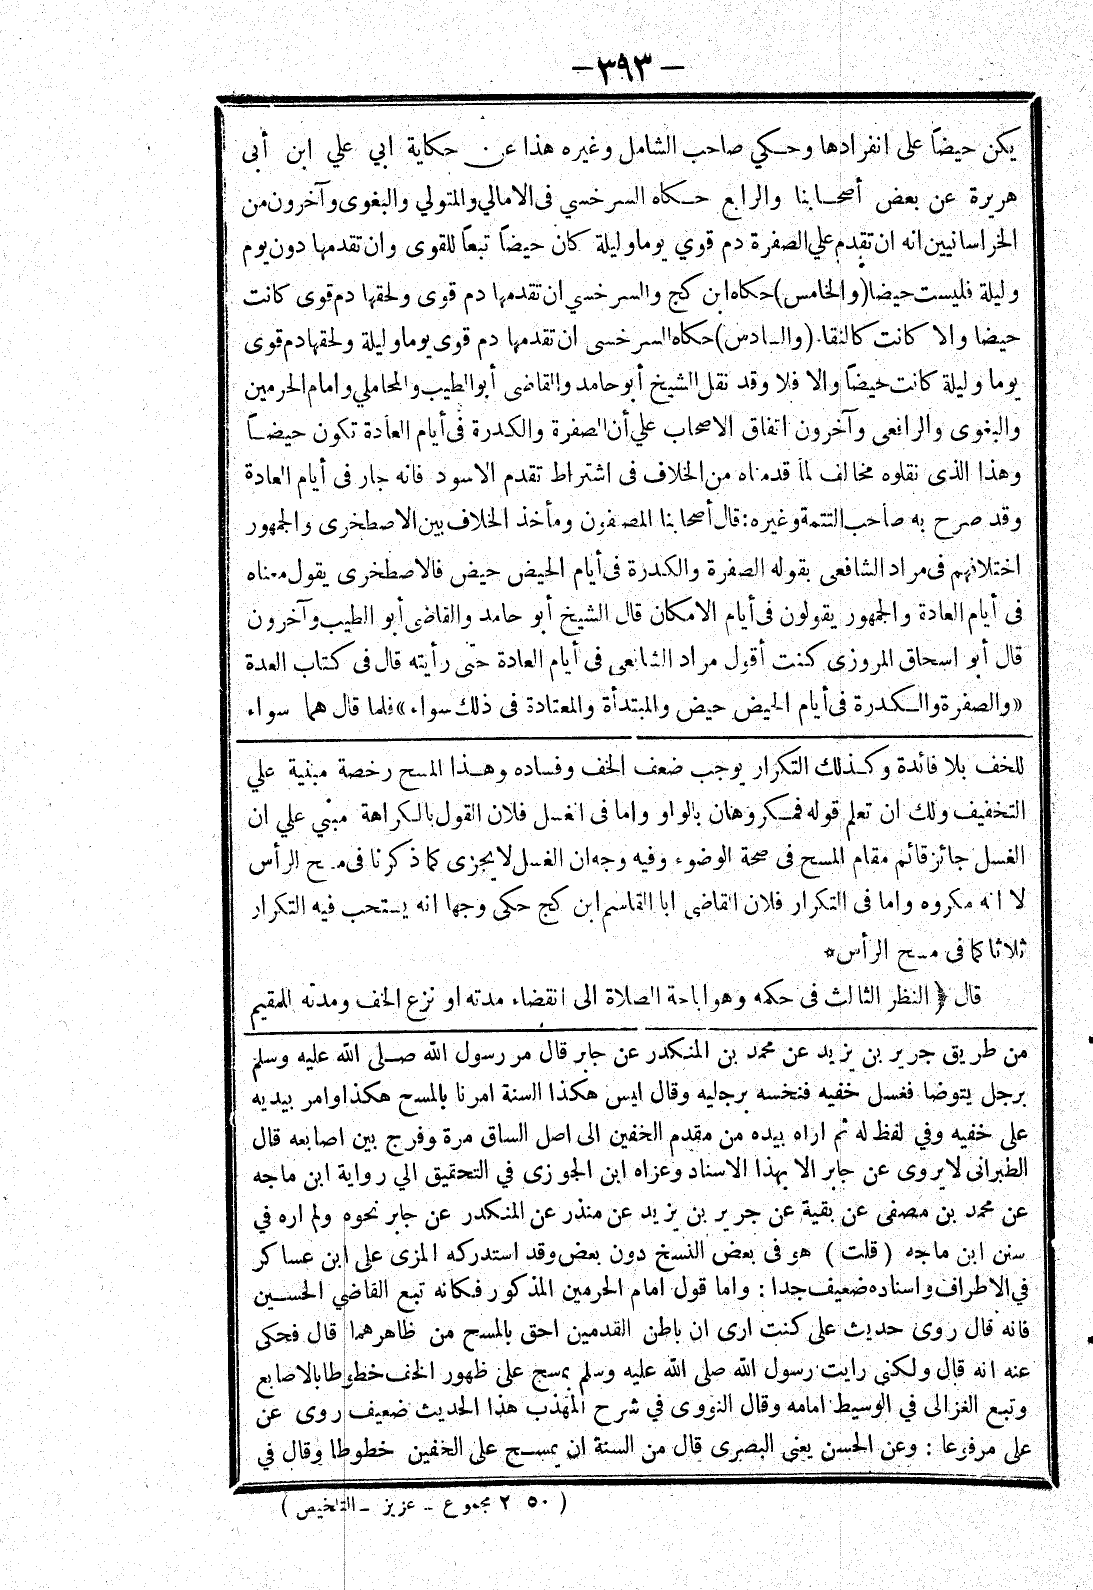 — ٣٩٣ —
يكن حيضاً على انفرادها وحكي صاحب الشامل وغيره هذا عن حكاية ابي علي ابن أبى
هريرة عن بعض أصحابنا والرابع حكاه السرخسي فى الامالي والمتولي والبغوى وآخرون من
الخراسانيين انه ان تقدم علي الصفرة دم قوي يوما وليلة كان حيضاً تبعاً للقوى وان تقدمها دون يوم
وليلة فليست حيضا (والخامس) حكاه ابن كج والسرخسي ان تقدمها دم قوى ولحقها دم قوى كانت
حيضا والا كانت كالنقا. (والسادس) حكاه السرخسى ان تقدمها دم قوى يوما وليلة ولحقها دم قوى
يوما وليلة كانت حيضاً والا فلا وقد نقل الشيخ أبو حامد والقاضى أبو الطيب والمحاملي وامام الحرمين
والبغوى والرافعى وآخرون اتفاق الاصحاب علي أن الصفرة والكدرة فى أيام العادة تكون حيضاً
وهذا الذى نقلوه مخالف لما قدمناه من الخلاف فى اشتراط تقدم الاسود فانه جار فى أيام العادة
وقد صرح به صاحب التتمة وغيره : قال أصحابنا المصنفون ومأخذ الخلاف بين الاصطخرى والجمهور
اختلافهم فى مراد الشافعى بقوله الصفرة والكدرة فى أيام الحيض حيض فالاصطخرى يقول معناه
فى أيام العادة والجمهور يقولون فى أيام الامكان قال الشيخ أبو حامد والقاضى أبو الطيب وآخرون
قال أبو اسحاق المروزى كنت أقول مراد الشافعى فى أيام العادة حتى رأيته قال فى كتاب العدة
«والصفرة والكدرة فى أيام الحيض حيض والمبتدأة والمعتادة فى ذلك سواء» فلما قال هما سواء
للخف بلا فائدة وكذلك التكرار يوجب ضعف الخف وفساده وهذا المسح رخصة مبنية علي
التخفيف ولك ان تعلم قوله فمكروهان بالواو واما فى الغسل فلان القول بالكراهة مبني علي ان
الغسل جائز قائم مقام المسح فى صحة الوضوء وفيه وجه ان الغسل لا يجزى كما ذكرنا فى مسح الرأس
لا انه مكروه واما فى التكرار فلان القاضى ابا القاسم ابن كج حكى وجها انه يستحب فيه التكرار
ثلاثا كما فى مسح الرأس *
قال ﴿ النظر الثالث فى حكمه وهو اباحة الصلاة الى انقضاء مدته او نزع الخف ومدته للمقيم
من طريق جرير بن يزيد عن محمد بن المنكدر عن جابر قال مر رسول الله صلى الله عليه وسلم
برجل يتوضا فغسل خفيه فنخسه برجليه وقال ليس هكذا السنة امرنا بالمسح هكذا وامر بيديه
على خفيه وفي لفظ له ثم اراه بيده من مقدم الخفين الى اصل الساق مرة وفرج بين اصابعه قال
الطبرانى لا يروى عن جابر الا بهذا الاسناد وعزاه ابن الجوزى في التحقيق الي رواية ابن ماجه
عن محمد بن مصفى عن بقية عن جرير بن يزيد عن منذر عن المنكدر عن جابر نحوه ولم اره في
سنن ابن ماجه ( قلت ) هو فى بعض النسخ دون بعض وقد استدركه المزى على ابن عساكر
في الاطراف واسناده ضعيف جدا : واما قول امام الحرمين المذكور فكانه تبع القاضي الحسين
فانه قال روى حديث على كنت ارى ان باطن القدمين احق بالمسح من ظاهرهما قال فحكى
عنه انه قال ولكنى رايت رسول الله صلى الله عليه وسلم يمسح على ظهور الخف خطوطا بالاصابع
وتبع الغزالى في الوسيط امامه وقال النووى في شرح المهذب هذا الحديث ضعيف روى عن
على مرفوعا : وعن الحسن يعنى البصرى قال من السنة ان يمسح على الخفين خطوطا وقال في
( ٥٠ ٢ مجموع ـ عزيز ـ التلخيص )